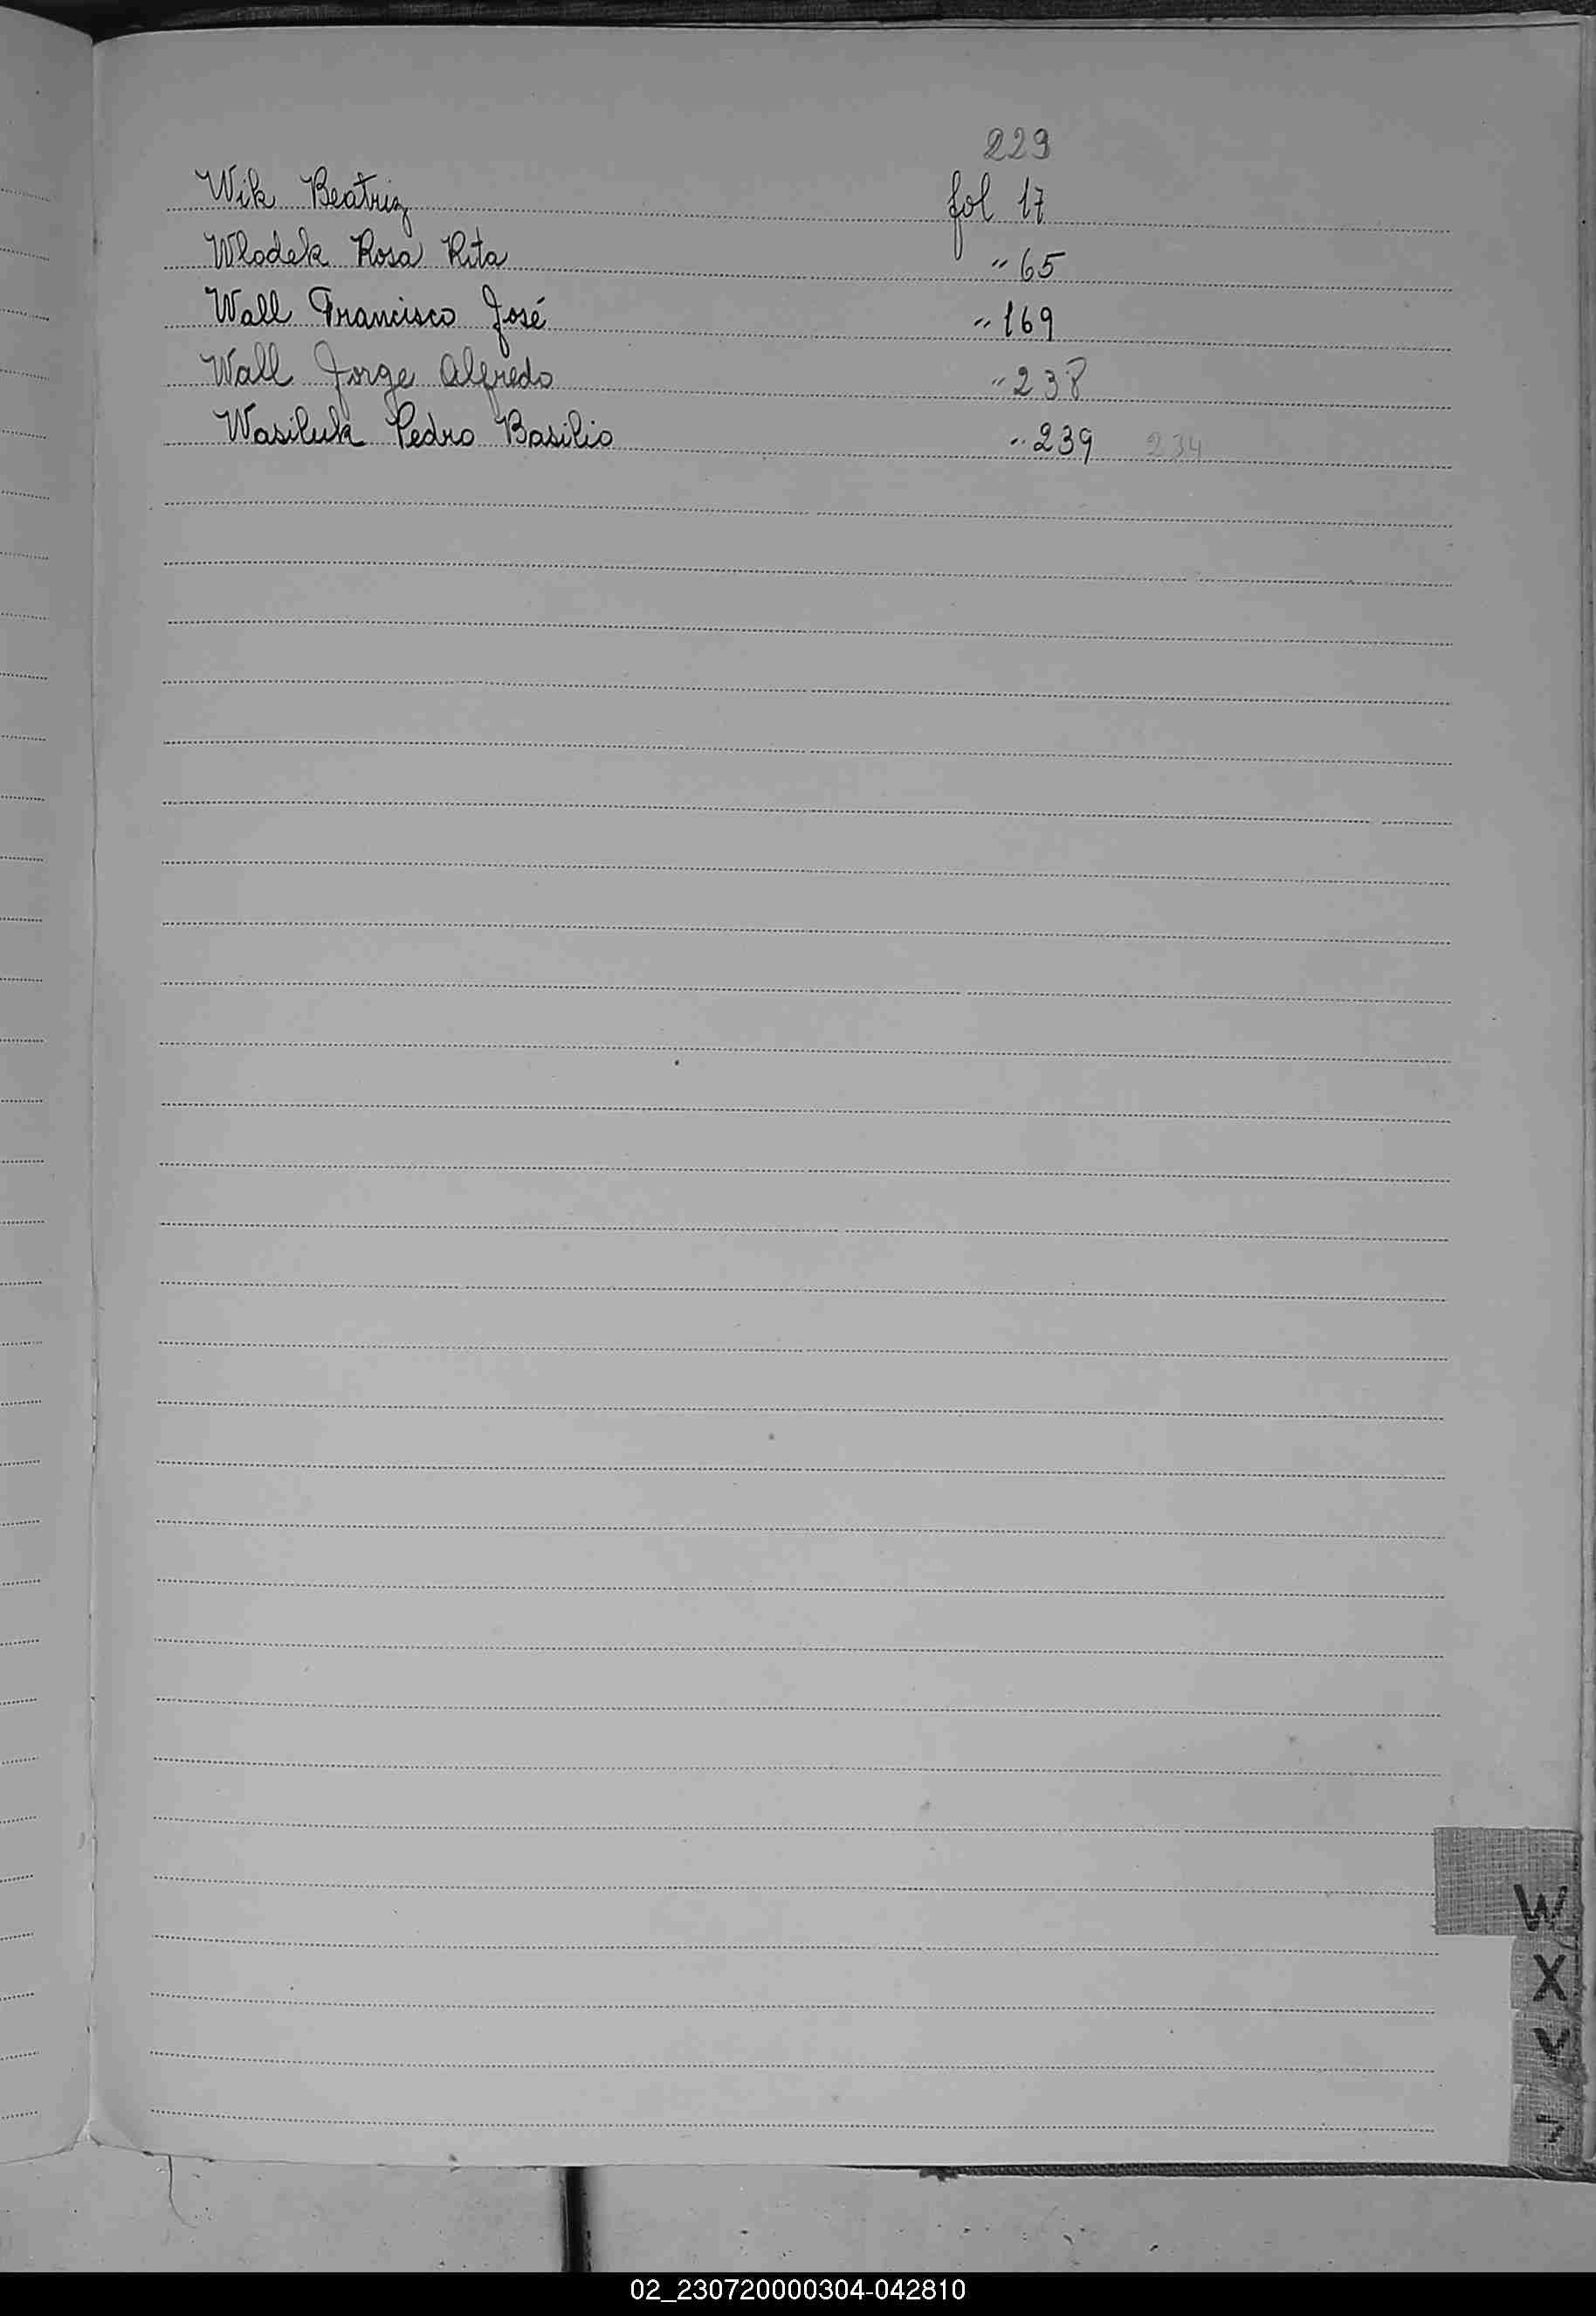 229
Wik Beatriz fol 17
Wlodek Rosa Rita " 65
Wall Francisco José " 169
Wall Jorge Alfredo " 238
Wasiluk Pedro Basilio " 239 234
W
X
Y
02_230720000304-042810